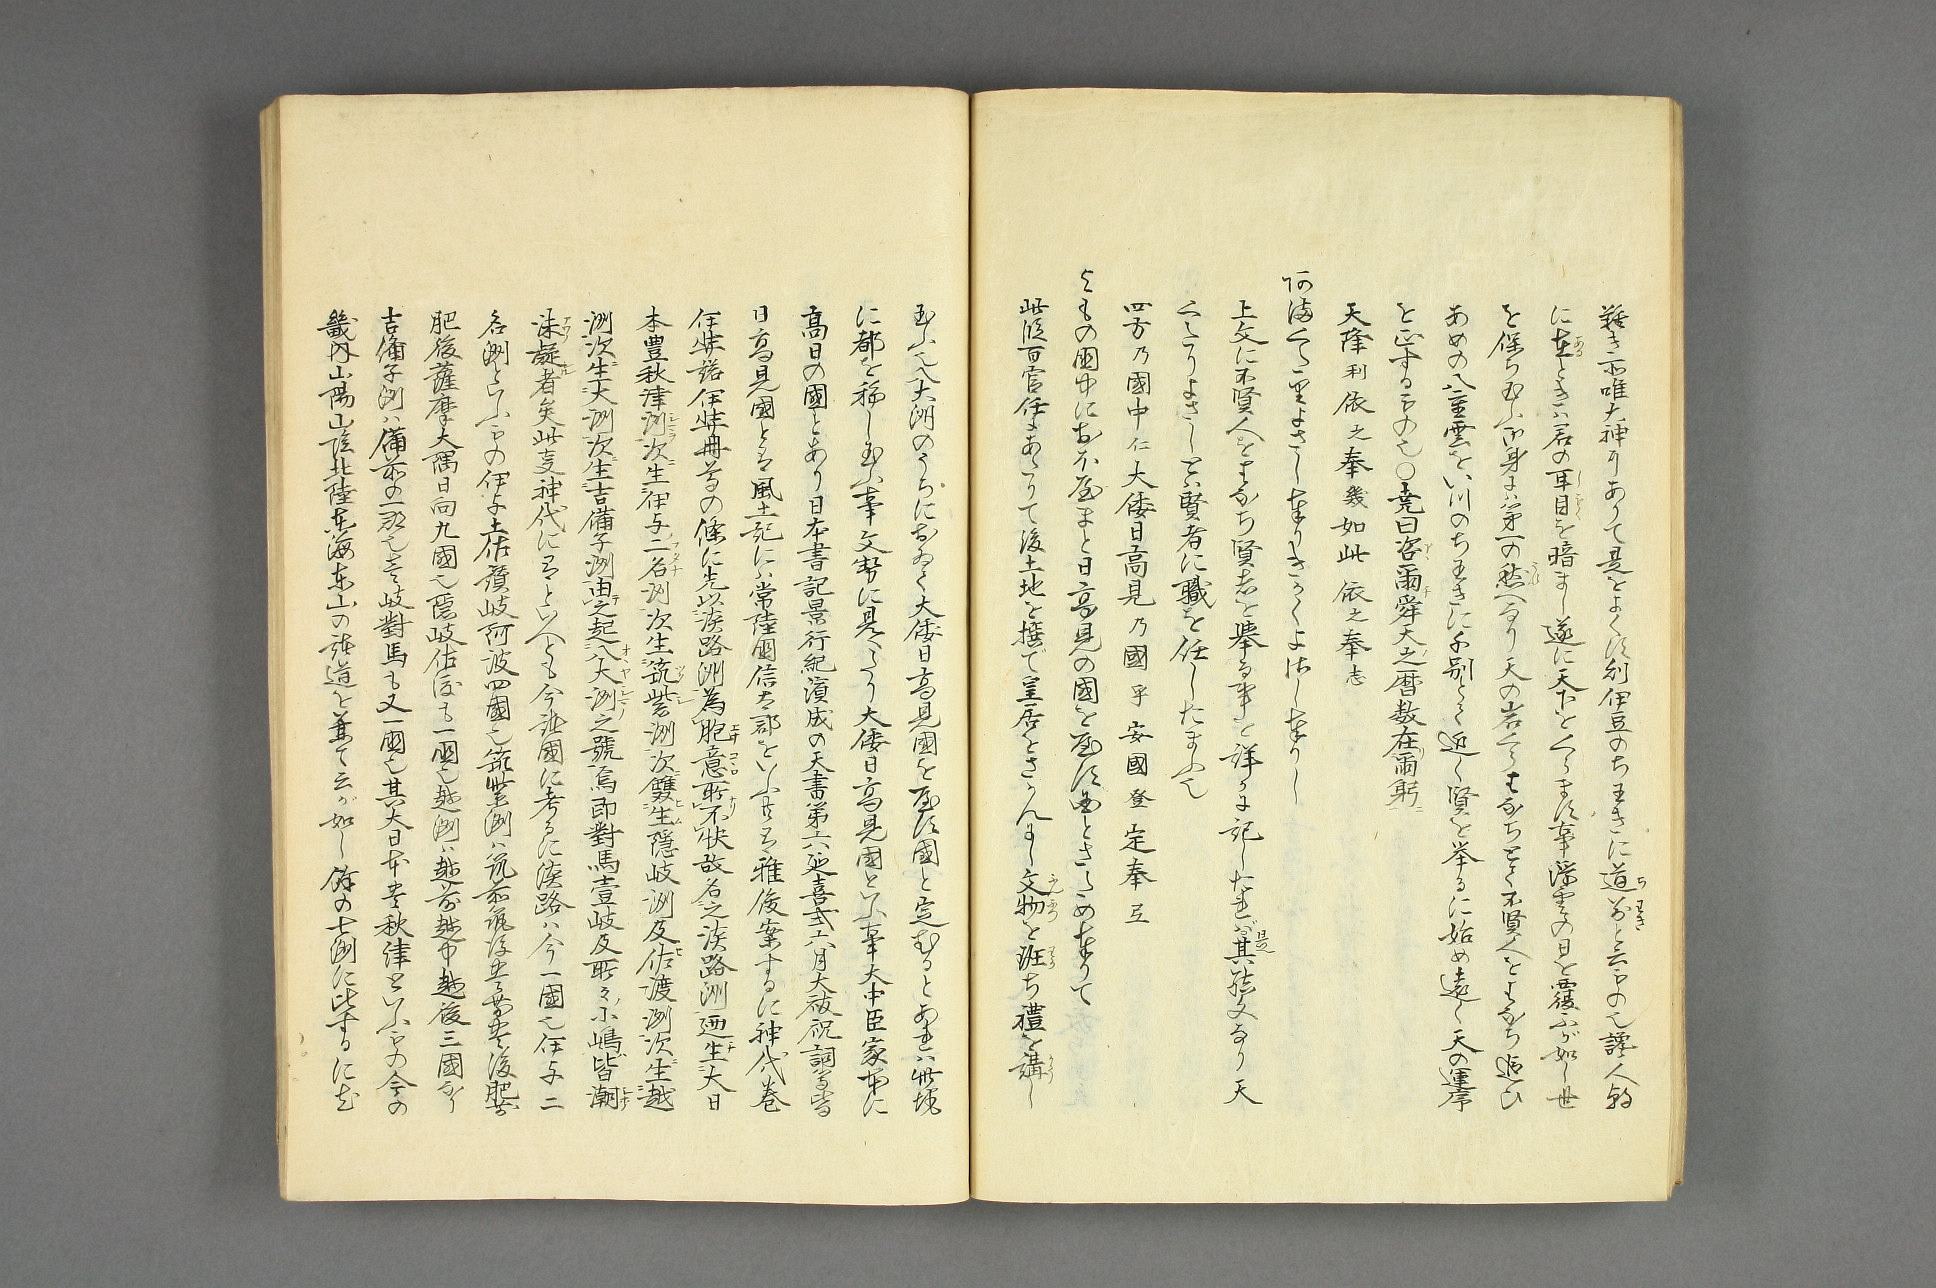 難き而唯大神ありて是をよくす別伊豆のちわきに道別と云もの也讒人朝
に在ときハ君の耳目を暗まし遂に天下をくらます事浮雲の日を覆ふが如し世
を保ち玉ふ御身にハ第一の愁へなり天の岩くらはなちとハ不賢人をはなち追ひ
あめの八重雲をい川のちわきに千別とハ近く賢を挙るに始め遠く天の運序
を正するもの也○堯曰咨爾舜天之暦数在爾躬
天降利依之奉幾如此依之奉志
阿満くたりよさしまつりきかくよさしまつりし
上文に不賢人をはなち賢者を挙る事を詳に記したれば其能文なり天
くたりよさしとハ賢者に職を任したまふ也
四方乃國中仁大倭日高見乃國乎安國登定奉弖
よもの国中におほやまと日高見の國を安す国とさためまつりて
此段百官任まありて後土地を撰で皇居をさだんまし文物を班ち禮を講し
玉ふ也八大洲のうちにおゐて大倭日高見國を安す國と定むるとあれハ此地
に都を移し玉ふ事文勢に見へたり大倭日高見國といふ事大中臣家本に
高日の國とあり日本書記景行紀濱成の天書第六延喜式六月大祓祝詞等皆
日高見國とす風土記にハ常陸國信太郡をいふ歟雅俊案するに神代巻
伊弉諾伊弉冊尊の條に先以淡路洲為胞意所不快故名之淡路洲廼生大日
本豊秋津洲次生伊与二名洲次生筑紫洲次雙生隠岐洲及佐渡洲次生越
洲次生大洲次生吉備子洲由之起八大洲之號焉即對馬壹岐及所々小嶋皆潮
沫凝者矣此文神代に有といへとも今諸國に考るに淡路ハ今一國也伊与二
名洲といふもの伊与土佐讃岐阿波四國也筑紫洲ハ筑前筑後豊前豊後肥前
肥後薩摩大隅日向九國也隠岐佐渡も一國也越洲ハ越前越中越後三國なり
吉備子洲ハ備前の一郡也壱岐對馬も又一國也其大日本豊秋津といふもの今の
畿内山陽山陰北陸東海東山の諸道を兼て云が如し餘の七洲に比するに尤